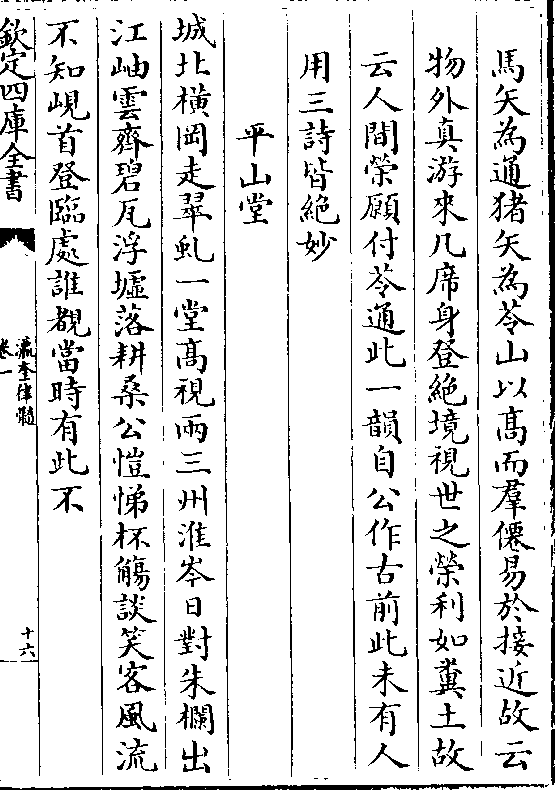 馬矢為通猪矢為苓山以髙而羣僊易於接近故云
物外真游來几席身登絶境視世之榮利如糞土故
云人間榮願付苓通此一韻自公作古前此未有人
用三詩皆絶妙
平山堂
城北横岡走翠虬一堂髙視兩三州淮岑日對朱欄出
江岫雲齊碧瓦浮墟落耕桑公愷悌杯觴談笑客風流
不知峴首登臨處誰覩當時有此不
欽定四庫全書
瀛奎律髓
卷一
十六